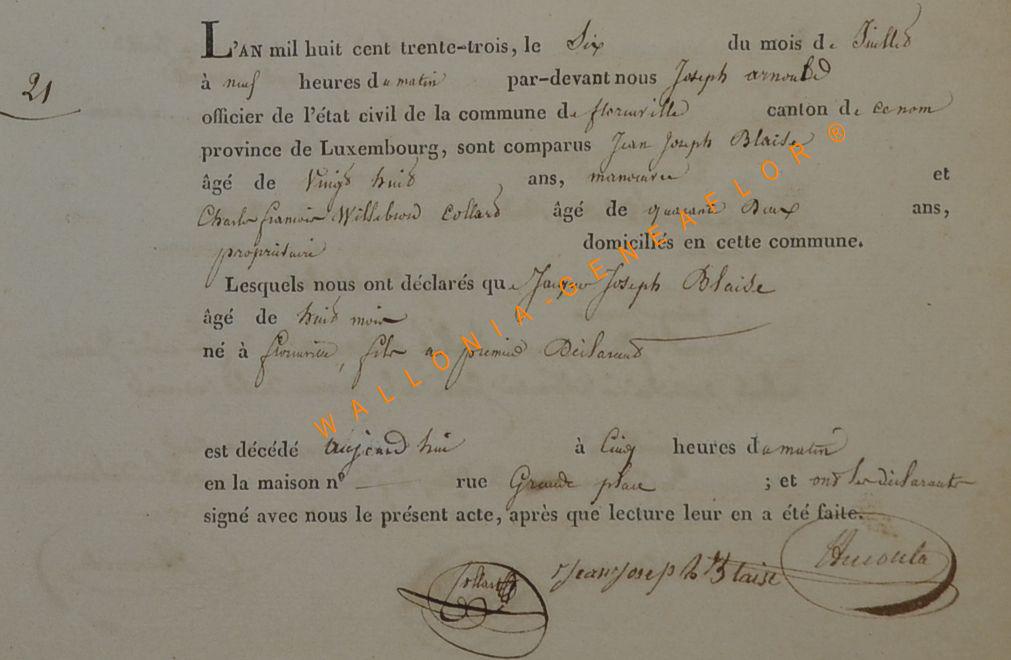 L'AN mil huit cent trente-trois, le Six du mois de Juillet
à neuf heures du matin par-devant nous Joseph arnould
21
officier de l'état civil de la commune de florenville canton de ce nom
province de Luxembourg, sont comparus Jean Joseph Blaise
âgé de Vingt huit ans, manoeuvre et
Charle francois Willebrord Collard âgé de quarante Deux ans,
propriétaire domiciliés en cette commune.
Lesquels nous ont déclarés que Joseph Blaise
âgé de huit mois
né à florenville, fils a premier Déclarant
est décédé aujourd hui à Cinq heures du matin
en la maison nº rue Grande place ; et ont les déclarants
signé avec nous le présent acte, après que lecture leur en a été faite.
Collard Jean Joseph Blaise
WALLONIA-GENEAFLOR ®